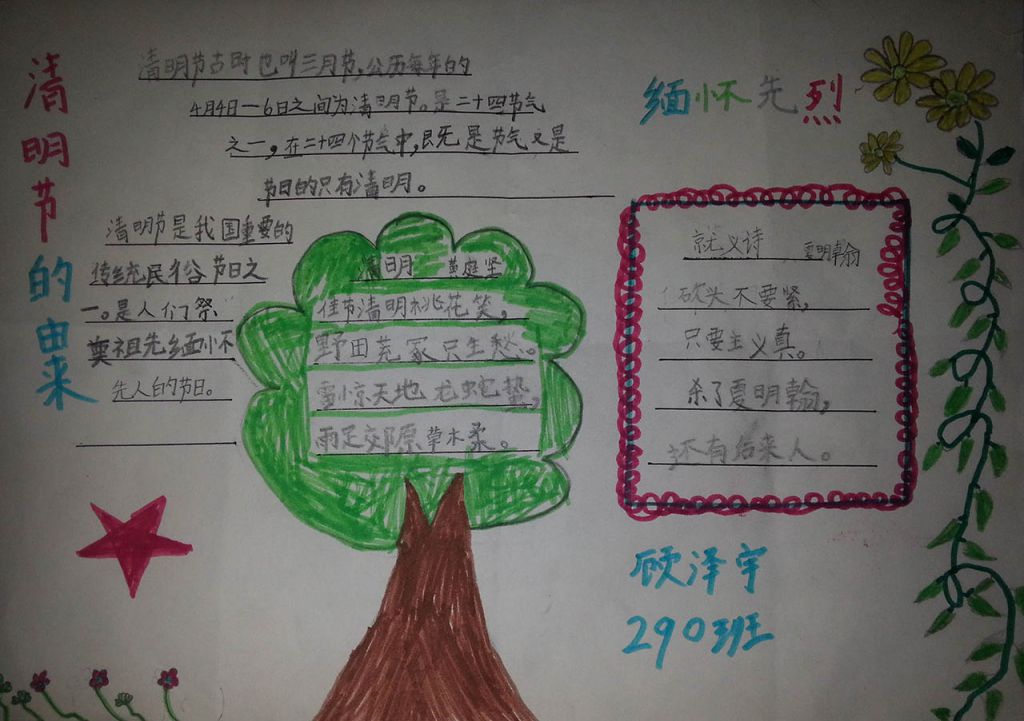 清明节的由来
清明节古时也叫三月节,公历每年的
4月4日—6日之间为清明节。是二十四节气
之一,在二十四个节气中,既是节气又是
节日的只有清明。
清明节是我国重要的
传统民俗节日之
一。是人们祭
奠祖先缅怀
先人的节日。
清明 黄庭坚
佳节清明桃花笑,
野田荒冢只生愁。
雷惊天地龙蛇蛰,
雨足郊原草木柔。
缅怀先烈
就义诗 夏明翰
砍头不要紧,
只要主义真。
杀了夏明翰,
还有后来人。
顾泽宇
290班